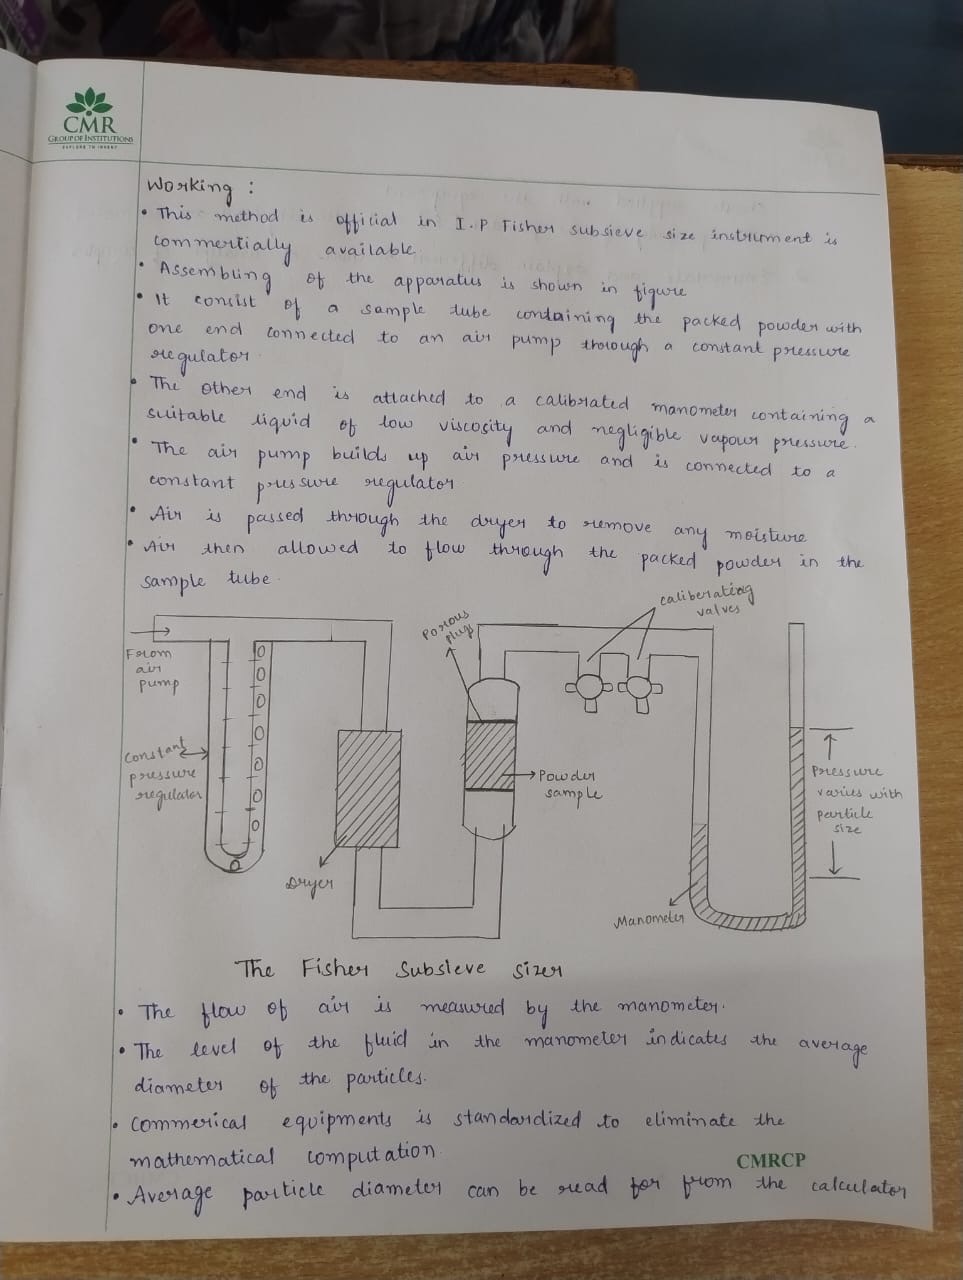 CMR
GROUP OF INSTITUTIONS
EXPLORE TO INVENT
Working :
• This method is official in I.P Fisher subsieve size instrument is
commertially available.
• Assembling of the apparatus is shown in figure
• It consist of a sample tube containing the packed powder with
one end connected to an air pump through a constant pressure
regulator.
• The other end is attached to a calibrated manometer containing a
suitable liquid of low viscosity and negligible vapour pressure.
• The air pump builds up air pressure and is connected to a
constant pressure regulator.
• Air is passed through the dryer to remove any moisture
• Air then allowed to flow through the packed powder in the
sample tube.
caliberating
valves
Porous
plug
From
air
pump
Constant
pressure
regulator
Powder
sample
Pressure
varies with
particle
size
Dryer
Manometer
The Fisher Subsieve sizer
• The flow of air is measured by the manometer.
• The level of the fluid in the manometer indicates the average
diameter of the particles.
• Commerical equipments is standardized to eliminate the
mathematical computation.
CMRCP
• Average particle diameter can be read for from the calculator